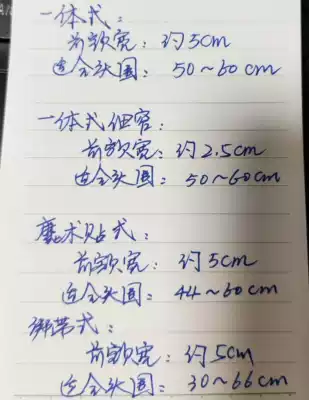 一体式：
前额宽：约5cm
适合头围：50~60cm
一体式细窄：
前额宽：约2.5cm
适合头围：50~60cm
魔术贴式：
前额宽：约5cm
适合头围：44~60cm
绑带式：
前额宽：约5cm
适合头围：30~66cm